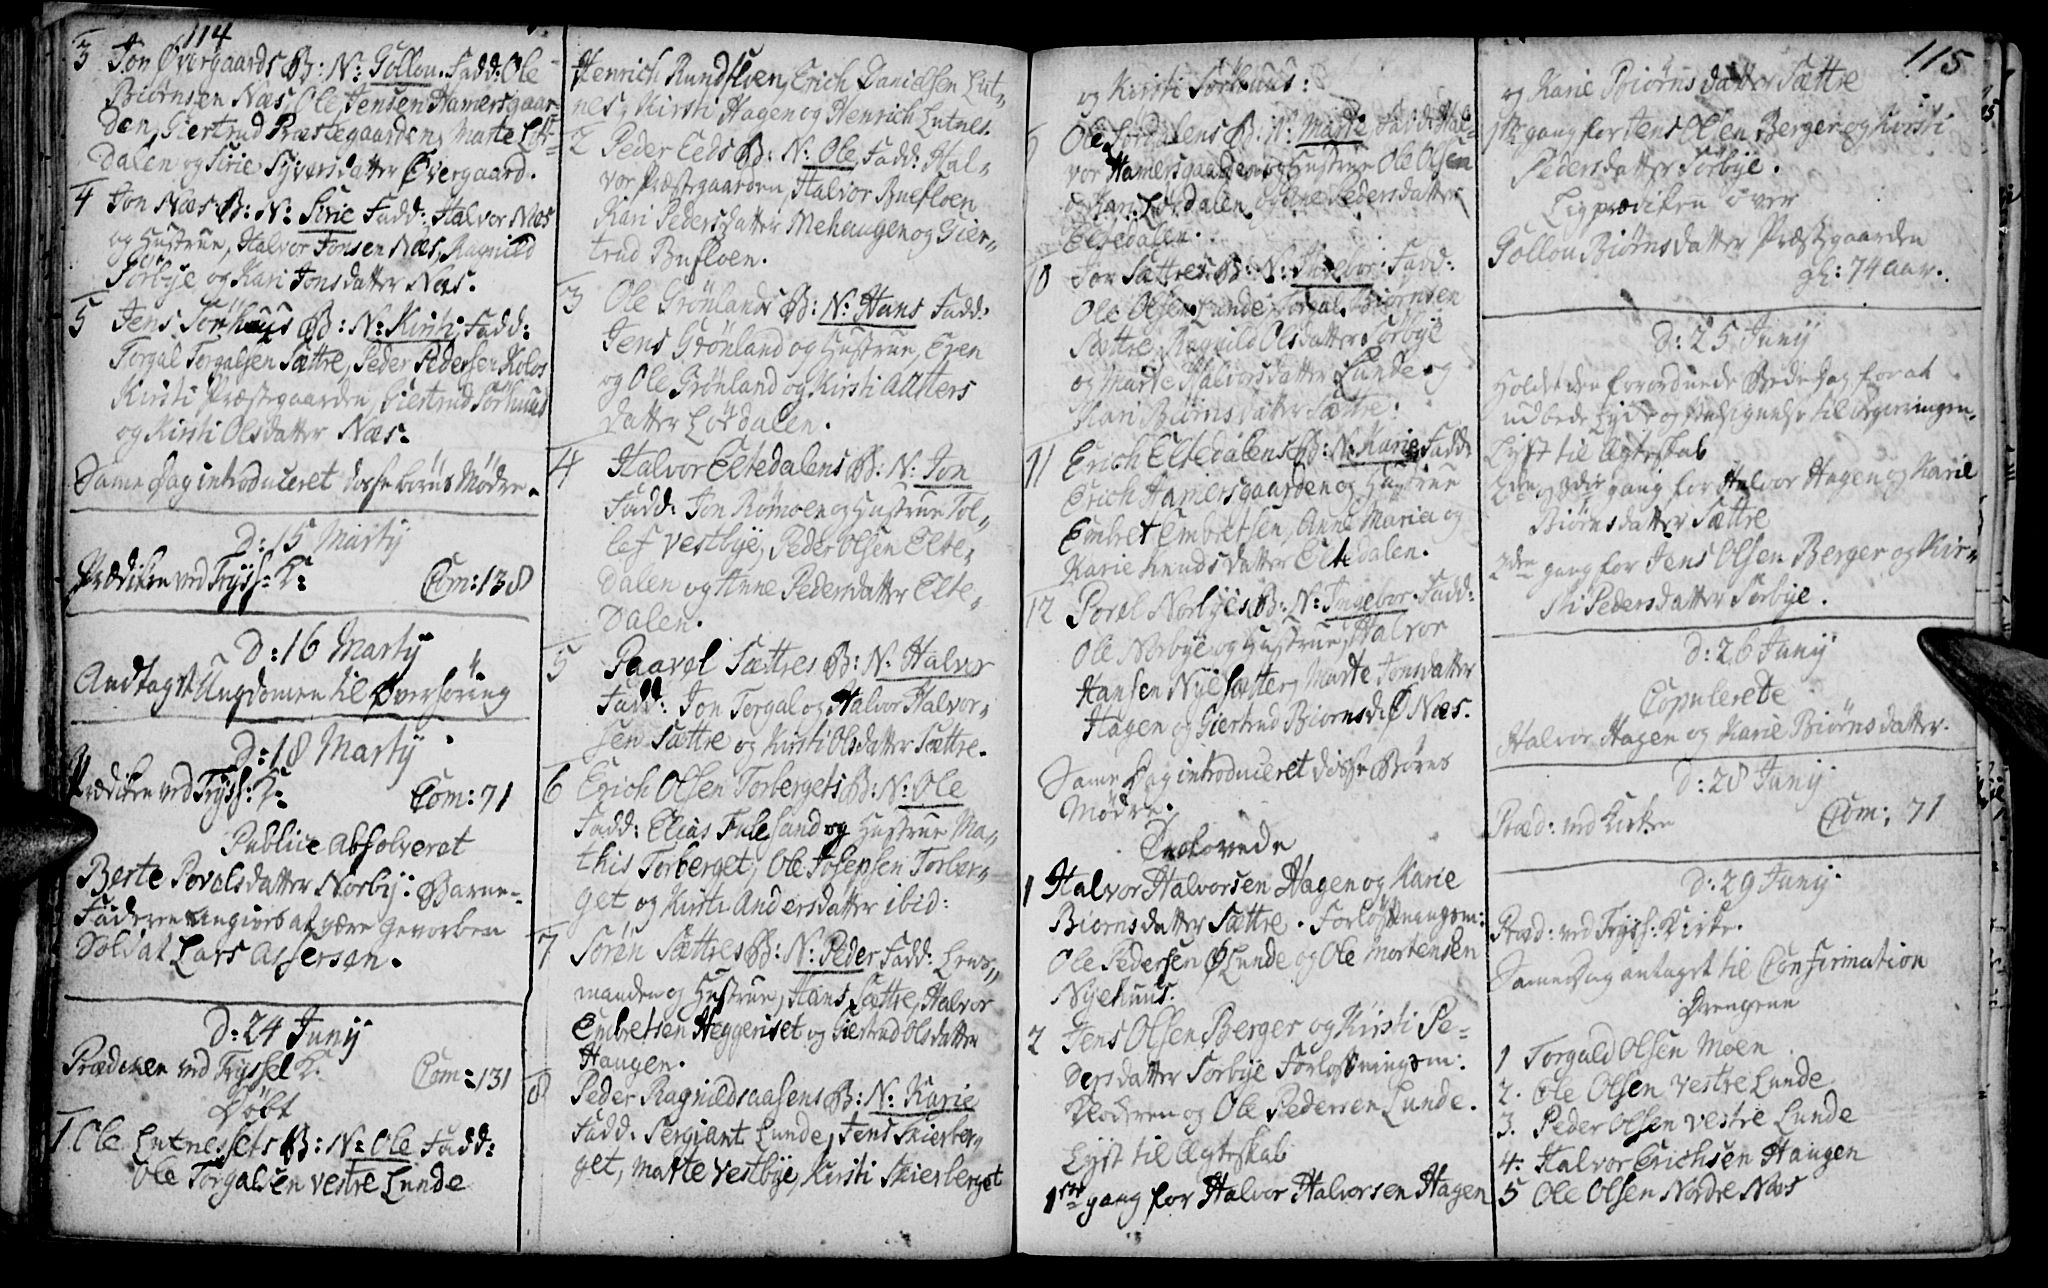 114
3 Jon Øvergaards B: N: Gollou. Fadd: Ole
Biørnsen Næs, Ole Jensen Hamersgaar-
den, Giertrud Præstegaarden, Marte Lør-
dalen og Sirie Syversdatter Øvergaard.
4 Jon Næs B: N: Sirie Fadd: Halvor Næs
og Hustrue, Halvor Jonsen Næs, Ragnild
Sørbye og Kari Jonsdatter Næs.
5 Jens Sørhuus B: N: Kirsti Fadd:
Torgal Torgalsen Sættre, Peder Pedersen Kolos
Kirsti Præstegaarden, Giertrud Sørhuus
og Kirsti Olsdatter Næs.
Same Dag introduceret disse børns Mødre.
D: 15 Martij
Prædiken ved Tryss: K: Com: 138
D: 16 Martij
Andtaget Ungdomen til Overhøring
D: 18 Martij
Prædiken ved Tryss: K: Com: 71
Publice Absolveret
Berte Povelsdatter Norbij: Barne-
Faderen angives at være Gevorben
Soldat Lars Assersøn.
D: 24 Junij
Prædiken ved Tryssel K. Com: 131
Døbt
1 Ole Lutnessets B: N: Ole Fadd:
Ole Torgalsen vestre Lunde
Henrich Rundfloen, Erich Danielsen Lut-
nes, Kirsti Hagen og Henrich Lutnes.
2 Peder Eeds B: N: Ole Fadd: Hal-
vor Præstegaarden, Halvor Bufloen
Kari Pedersdatter Mehaugen og Gier-
trud Bufloen.
3 Ole Grønlands B: N: Hans Fadd:
Jens Grønland og Hustrue, Even
og Ole Grønland og Kirsti Anders
datter Lørdalen.
4 Halvor Eltedalens B: N: Jon
Fadd: Jon Rømoen og Hustrue Tol-
lef Vestbye, Peder Olsen Elte-
dalen og Anne Pedersdatter Elte-
dalen.
5 Paavel Sættres B: N: Halvor
Fadd: Jon Torgal og Halvor Halvor-
sen Sættre og Kirsti Olsdatter Sættre.
6 Erich Olsen Torbergets B: N: Ole
Fadd: Elias Fulesand og Hustrue Ma-
this Torberget, Ole Josepsen Torber-
get og Kirsti Andersdatter ibid:
7 Sørin Sættres B: N: Peder Fadd: Lens-
manden og Hustrue, Hans Sættre, Halvor
Embretsen Heggeriset og Giertrud Olsdatter
Haugen.
8 Peder Ragnildsaasens B: N: Karie
Fadd. Sergiant Lunde, Jens Skierber-
get, Marte Vestbye, Kirsti Skierberget
115
og Kirsti Sørhuus:
9 Ole Lørdalens B: N: Marte Fadd: Hal-
vor Hamersgaarden og Hustrue Ole Olsen
og Kari Lørdalen og Ane Pedersdatter
Eltedalen.
10 Jon Sættres B: N: Ingebor. Fadd:
Ole Olsen Lunde, Torgal Biørnsen
Sættre, Ragnild Olsdatter Sørbye
og Marte Halvorsdatter Lunde og
Kari Biørnsdatter Sættre.
11 Erich Eltedalens B: N: Karie Fadd:
Erich Hamersgaarden og Hustrue
Embret Embretsen, Anne Maria og
Karie Knudsdatter Eltedalen.
12 Povel Norbyes B: N: Ingebor. Fadd:
Ole Norbye og Hustrue, Halvor
Hansen Nyesætter, Marte Jonsdatter
Hagen og Giertrud Biornsd: Ø Næs.
Same Dag introduceret disse Børns
Mødre.
Trolovede
1 Halvor Halvorsen Hagen og Karie
Biornsdatter Sættre. Forløfningsm:
Ole Pedersen Ø Lunde og Ole Mortensen
Nyehuus.
2 Jens Olsen Berger og Kirsti Pe-
dersdatter Sørbye Forlofningsm:
Klokeren og Ole Pedersen Lunde.
Lyst til Ægteskab
1ste gang for Halvor Halvorsen Hagen
og Karie Biørnsdatter Sættre
1ste gang for Jens Olsen Berger og Kirsti
Pedersdatter Sørbye.
Ligprædiken over
Gollou Biørnsdatter Præstegaarden
gl: 74 aar.
D: 25 Junij
Holdt den forordnede Bededag for at
udbede Lykke og Velsignelse til Regieringen.
Lyst til Ægteskab
2den og 3die gang for Halvor Hagen og Karie
Biørnsdatter Sættre
2den gang for Jens Olsen Berger og Kir-
sti Pedersdatter Sørbye.
D: 26 Junij
Copulerede
Halvor Hagen og Karie Biørnsdatter.
D: 28 Junij
Præd: ved Kirken Com: 71
D: 29 Junij
Præd: ved Tryss: Kirke.
Same Dag antaget til Confirmation
Drengene
1 Torgald Olsen Moen
2. Ole Olsen vestre Lunde
3. Peder Olsen vestre Lunde
4. Halvor Erichsen Haugen
5 Ole Olsen Nordre Næs